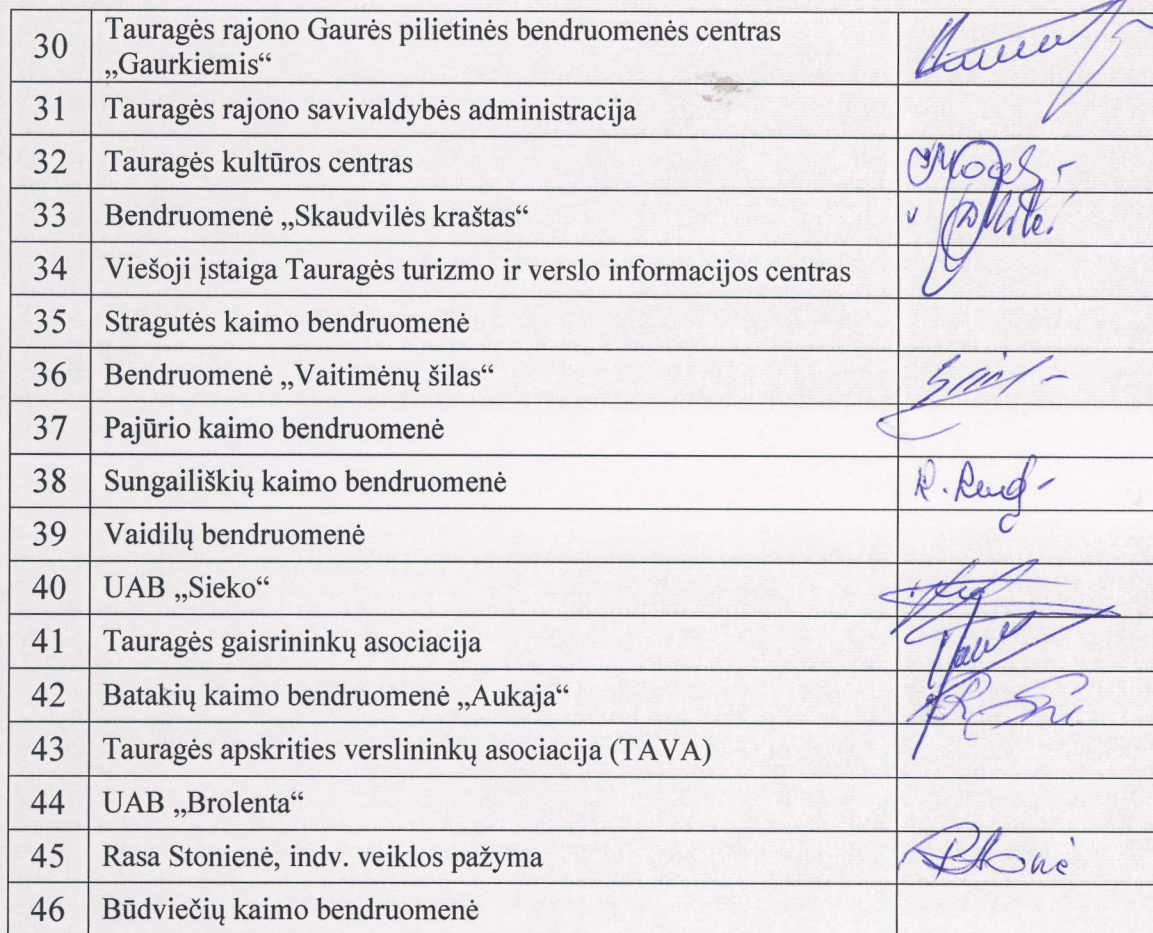 30 Tauragės rajono Gaurės pilietinės bendruomenės centras
„Gaurkiemis“
31 Tauragės rajono savivaldybės administracija
32 Tauragės kultūros centras
33 Bendruomenė „Skaudvilės kraštas“
34 Viešoji įstaiga Tauragės turizmo ir verslo informacijos centras
35 Stragutės kaimo bendruomenė
36 Bendruomenė „Vaitimėnų šilas“
37 Pajūrio kaimo bendruomenė
38 Sungailiškių kaimo bendruomenė
39 Vaidilų bendruomenė
40 UAB „Sieko“
41 Tauragės gaisrininkų asociacija
42 Batakių kaimo bendruomenė „Aukaja“
43 Tauragės apskrities verslininkų asociacija (TAVA)
44 UAB „Brolenta“
45 Rasa Stonienė, indv. veiklos pažyma
46 Būdviečių kaimo bendruomenė